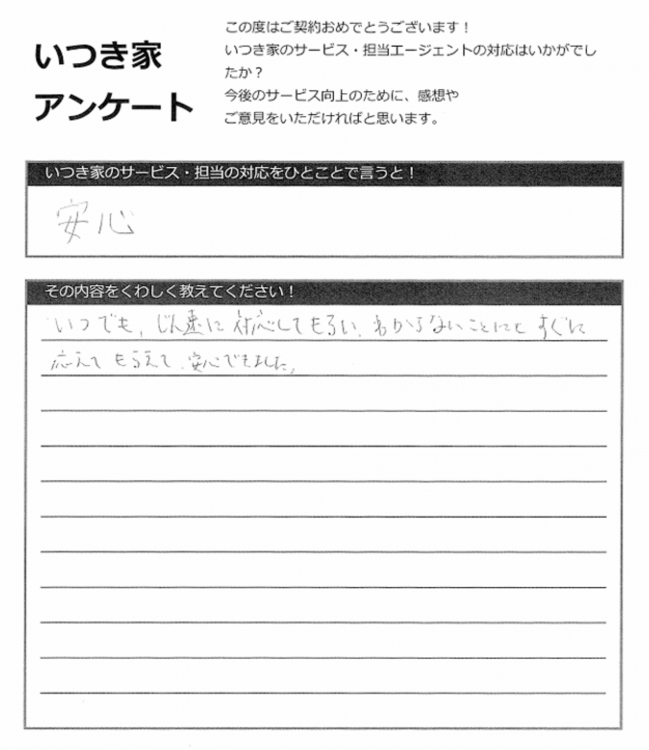 いつき家
アンケート
この度はご契約おめでとうございます！
いつき家のサービス・担当エージェントの対応はいかがでし
たか？
今後のサービス向上のために、感想や
ご意見をいただければと思います。
いつき家のサービス・担当の対応をひとことで言うと！
安心
その内容をくわしく教えてください！
いつでも、じん速に対応してもらい、わからないことにも すぐに
応えて もらえて、安心できました。